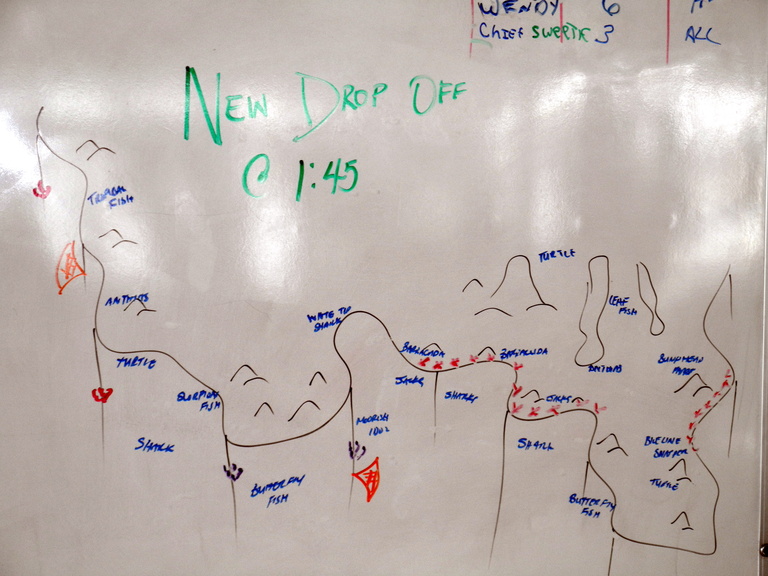 WENDY 6
CHIEF SWERTK 3 ALL
NEW DROP OFF
@ 1:45
TROPICAL
FISH
ANTHIAS
TURTLE
SCORPION
FISH
SHARK
BUTTERFLY
FISH
WHITE TIP
SHARK
MOORISH
IDOL
BARACUDA
JACKS
SHARKS
BARACUDA
TURTLE
LEAF
FISH
JACKS
SHARK
BUTTERFLY
FISH
BUMPHEAD
PARROT
BLUELINE
SNAPPER
TURTLE